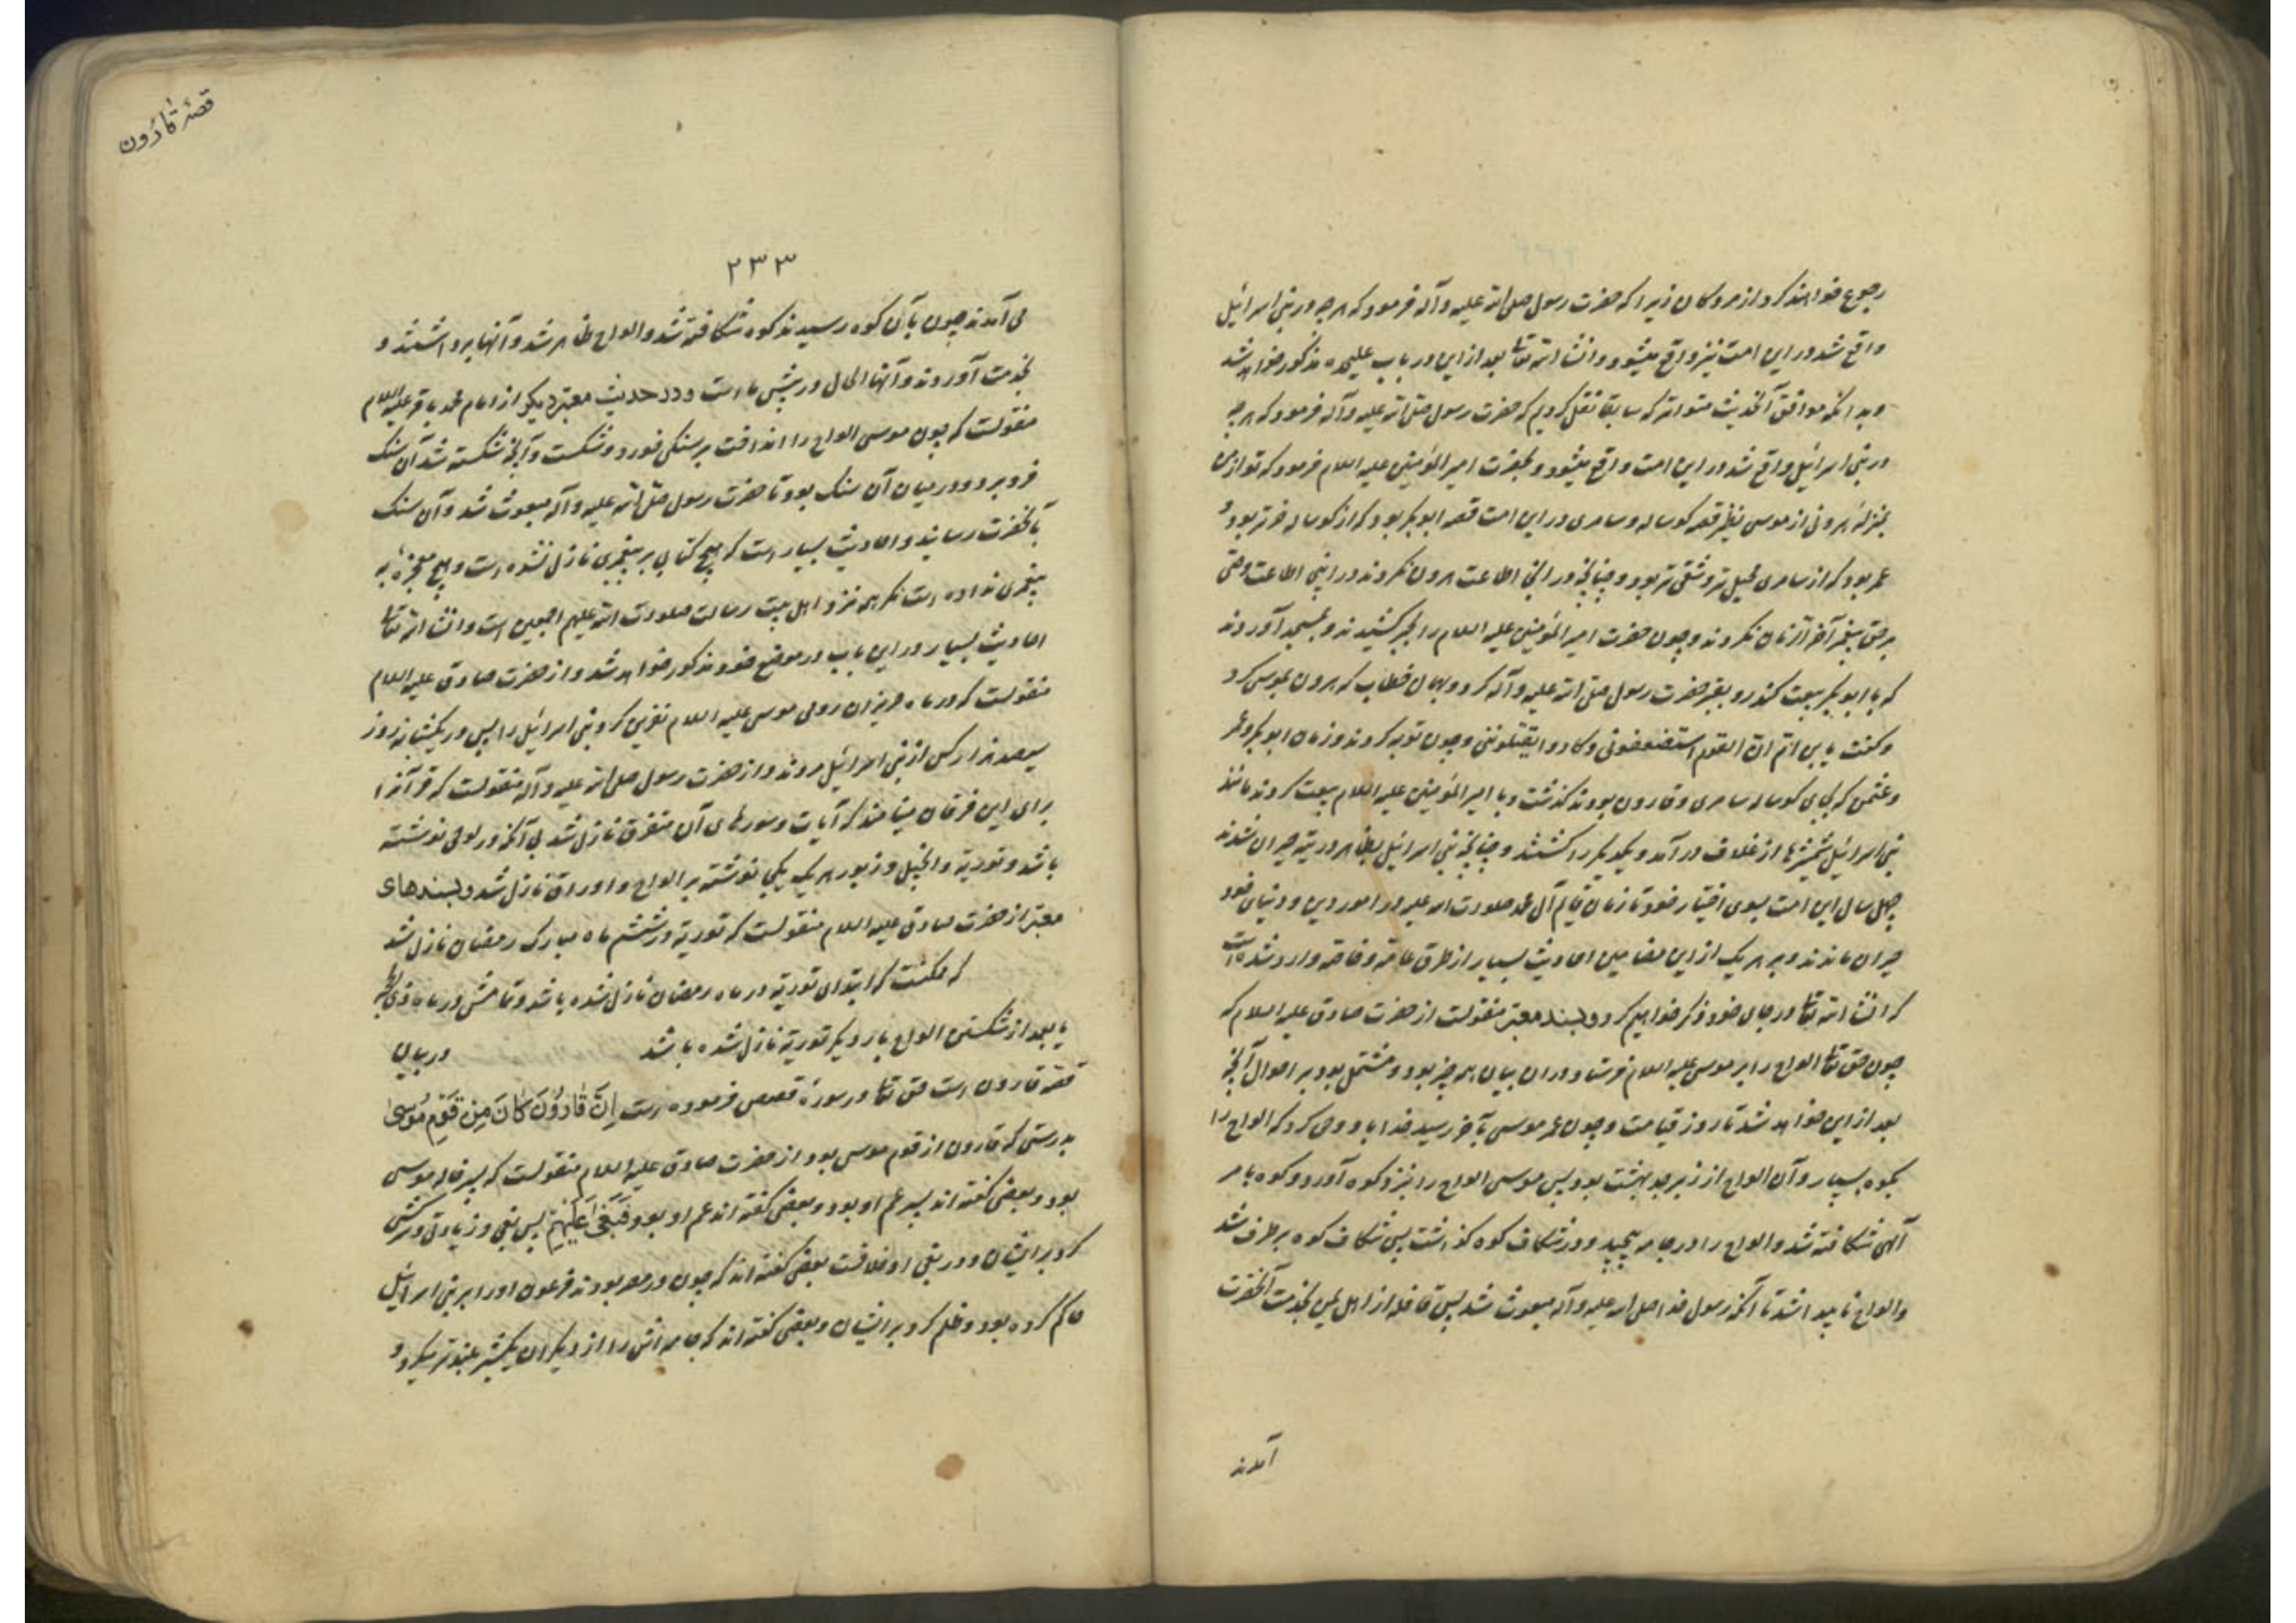 رجوع خواهند کرد از مردکان زیرا که حضرت رسول صلی الله علیه و آله فرمود که هر چه در بنی اسرائیل
واقع شد در این امت نیز واقع میشود و انشاء الله تعالی بعد از این در باب علیحده مذکور خواهد شد
و بدانکه موافق آن حدیث متواتر که سابقا نقل کردیم که حضرت رسول صلی الله علیه و آله فرمود که هر چه
در بنی اسرائیل واقع شد در این امت واقع میشود و بحضرت امیر المؤمنین علیه السلام فرمود که تو از من
بمنزلهٔ هرونی از موسی نظیر قصه کوساله و سامری در این امت قصه ابو بکر بود که از کوساله خرتر بود و
عمر بود که از سامری محیل تر و شقی تر بود و چنانچه در آنجا اطاعت هرون نکردند در اینجا اطاعت وصی
بر حق پیغمبر آخر الزمان نکردند و چون حضرت امیر المؤمنین علیه السلام را بجبر کشیدند و بمسجد آوردند
که با ابو بکر بیعت کند رو بقبر حضرت رسول صلی الله علیه و آله کرد و بهمان خطاب که هرون بموسی کرد
و کفت یابن ام ان القوم استضعفونی و کادوا یقتلوننی و چون توبه کردند و زمان ابو بکر و عمر
و عثمن که بجای کوساله سامری و قارون بودند کذشت و با امیر المؤمنین علیه السلام بیعت کردند مانند
بنی اسرائیل شمشیرها از غلاف در آمد و یکدیکر را کشتند و چنانچه بنی اسرائیل بظاهر در تیه حیران شدند
چهل سال این امت بسوی اختیار خود تا زمان قایم آل محمد صلوات الله علیه در امور دین و دنیای خود
حیران ماندند و بر هر یک از این مضامین احادیث بسیار از طرق عامه و خاصه وارد شده است
که انشاء الله تعالی در جای خود ذکر خواهیم کرد و بسند معتبر منقولست از حضرت صادق علیه السلام که
چون حق تعالی الواح را بر موسی علیه السلام فرستاد در ان بیان همه چیز بود و مشتمل بود بر احوال آنچه
بعد از این خواهد شد تا روز قیامت و چون عمر موسی بآخر رسید خدا باو وحی کرد که الواح را
بکوه بسپار و آن الواح از زبرجد بهشت بود پس موسی الواح را بنزد کوه آورد و کوه بامر
آلهی شکافته شد و الواح را در جامه پیچید و در شکاف کوه کذاشت پس شکاف کوه بر طرف شد
و الواح ناپیدا شد تا آنکه رسول خدا صلی الله علیه و آله مبعوث شد پس قافله از اهل یمن بخدمت آنحضرت
آمدند
قصهٔ قارون
۲۳۳
می آمدند چون بآن کوه رسیدند کوه شکافته شد و الواح ظاهر شد و آنها برداشتند و
بخدمت آوردند و آنها الحال در پیش ما است و در حدیث معتبر دیکر از امام محمد باقر علیه السلام
منقولست که چون موسی الواح را انداخت بر سنکی خورد و شکست و آنچه شکسته شد آن سنک
فرو برد و در میان آن سنک بود تا حضرت رسول صلی الله علیه و آله مبعوث شد و آن سنک
بآنحضرت رسانید و احادیث بسیار است که هیچ کتابی بر پیغمبری نازل نشده است و هیچ معجزهٔ به
پیغمبری نداده است مکر همه نزد اهل بیت رسالت صلوات الله علیهم اجمعین است و انشاء الله تعالی
احادیث بسیار در این باب در موضع خود مذکور خواهد شد و از حضرت صادق علیه السلام
منقولست که در ماه حزیران رومی موسی علیه السلام نفرین کرد بنی اسرائیل را پس در یکشبانه روز
سیصد هزار کس از بنی اسرائیل مردند و از حضرت رسول صلی الله علیه و آله منقولست که قرآنرا
برای این فرقان مینامند که آیات و سوره‌های آن متفرق نازل شد بی آنکه در لوحی نوشته
باشد و توریة و انجیل و زبور هر یک یکجا نوشته بر الواح و اوراق نازل شد و بسندهای
معتبر از حضرت صادق علیه السلام منقولست که توریة در ششم ماه مبارک رمضان نازل شد
که ممکنست که ابتدای توریة در ماه رمضان نازل شده باشد و تمامش در ماه ذی الحجه
یا بعد از شکستن الواح بار دیکر توریة نازل شده باشد در بیان
قصه قارون است حق تعالی در سورهٔ قصص فرموده است إِنَّ قَارُونَ كَانَ مِنْ قَوْمِ مُوسَىٰ
بدرستی که قارون از قوم موسی بود از حضرت صادق علیه السلام منقولست که پسر خاله موسی
بود و بعضی کفته اند پسر عم او بود و بعضی کفته اند عم او بود فَبَغَىٰ عَلَيْهِمْ پس بغی و زیادتی و سرکشی
کرد بر ایشان و در بغی او خلافست بعضی کفته اند که چون در مصر بودند فرعون او را بر بنی اسرائیل
حاکم کرده بود و ظلم کرد بر ایشان و بعضی کفته اند که جامه اش را از دیکران یکشبر بلندتر میکرد و